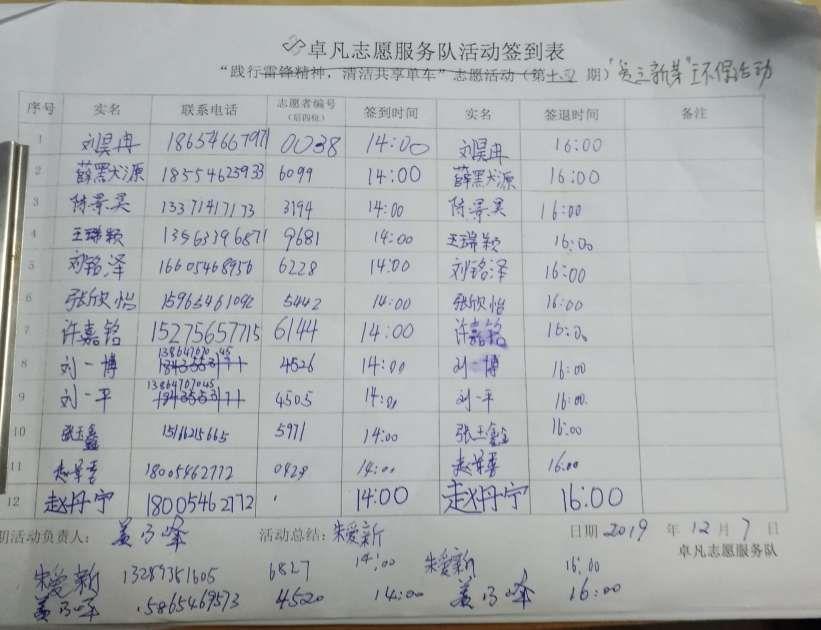 卓凡志愿服务队活动签到表
“践行雷锋精神，清洁共享单车”志愿活动（第十四期）环保活动
序号 实名 联系电话 志愿者编号（后四位） 签到时间 实名 签退时间 备注
1 刘昊冉 18654667971 0038 14:00 刘昊冉 16:00
2 18554623933 6099 14:00 16:00
3 陈景昊 13371417173 3194 14:00 陈景昊 16:00
4 王瑞颖 13563396871 9681 14:00 王瑞颖 16:00
5 刘铭泽 16605468956 6228 14:00 刘铭泽 16:00
6 张欣怡 15965461092 5442 14:00 张欣怡 16:00
7 许嘉铭 15275657715 6144 14:00 许嘉铭 16:00
8 刘一博 13864707045 4526 14:00 刘一博 16:00
9 刘一平 13864707045 4505 14:00 刘一平 16:00
10 张玉鑫 15116215665 5971 14:00 张玉鑫 16:00
11 18005462772 0429 14:00 16:00
12 赵丹宁 18005462772 14:00 赵丹宁 16:00
期活动负责人： 姜乃峰 活动总结：朱爱新 日期 2019 年 12 月 7 日
卓凡志愿服务队
朱爱新 13289351605 6827 14:00 朱爱新 16:00
姜乃峰 5865469573 4520 14:00 姜乃峰 16:00